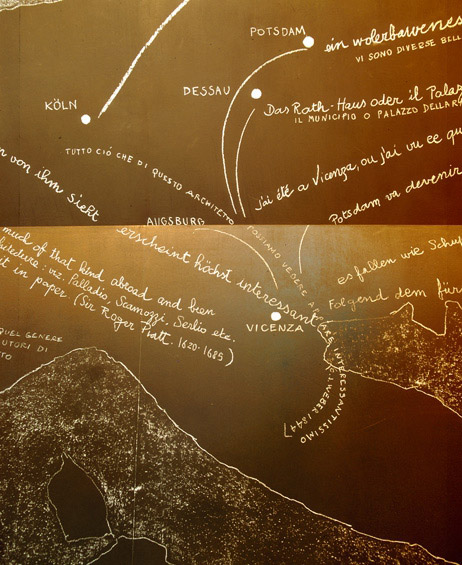 POTSDAM
ein wolerbawenes
VI SONO DIVERSE BELL
DESSAU
Das Rath-Haus oder il Palaz
IL MUNICIPIO O PALAZZO DELLA RA
KÖLN
TUTTO CIÒ CHE DI QUESTO ARCHITETTO
n von ihm sieht
j'ai été a Vicenza, ou j'ai vu ce qu
Potsdam va devenir
AUGSBURG
POSSIAMO VEDERE APPARE INTERESSANTISSIMO
erscheint höchst interessant
much of that kind abroad and bien
chitetture: viz. Palladio, Scamozzi, Serlio etc.
it in paper (Sir Roger Pratt. 1620-1685)
es fallen wie Schup
Folgend dem für
VICENZA
F. I. WEBER 1844
QUEL GENERE
AUTORI DI
TO